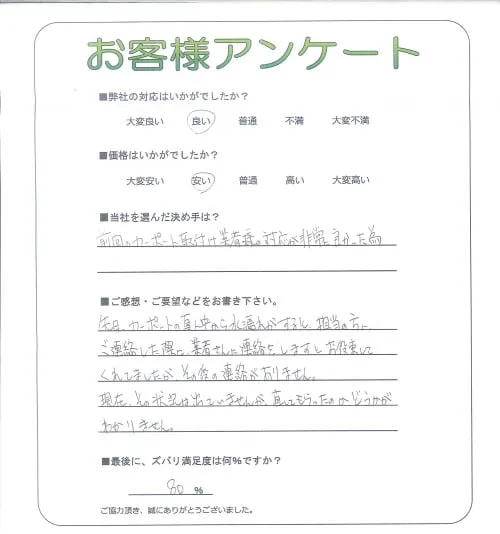 お客様アンケート
■弊社の対応はいかがでしたか？
大変良い 良い 普通 不満 大変不満
■価格はいかがでしたか？
大変安い 安い 普通 高い 大変高い
■当社を選んだ決め手は？
前回のカーポート取付け業者様の対応が非常に良かった為
■ご感想・ご要望などをお書き下さい。
先日、カーポートの真ん中から水漏れがすると、担当の方に
ご連絡した際に、業者さんに連絡をしますとお約束して
くれてましたが、その後の連絡がありません。
現在、その状況は出ていませんが、直してもらったのかどうかが
わかりません。
■最後に、ズバリ満足度は何％ですか？
80 ％
ご協力頂き、誠にありがとうございました。